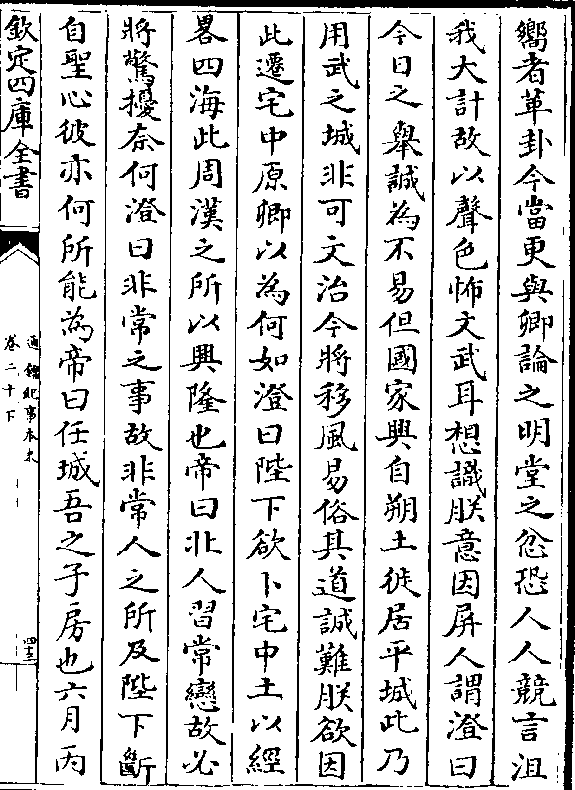 嚮者革卦今當更與卿論之明堂之忿恐人人競言沮
我大計故以聲色怖文武耳想識朕意因屏人謂澄曰
今日之舉誠為不易但國家興自朔土徙居平城此乃
用武之城非可文治今將移風易俗其道誠難朕欲因
此遷宅中原卿以為何如澄曰陛下欲卜宅中土以經
畧四海此周漢之所以興隆也帝曰北人習常戀故必
將驚擾奈何澄曰非常之事故非常人之所及陛下斷
自聖心彼亦何所能為帝曰任城吾之子房也六月丙
欽定四庫全書
通鑑紀事本末
卷二十下
四十三